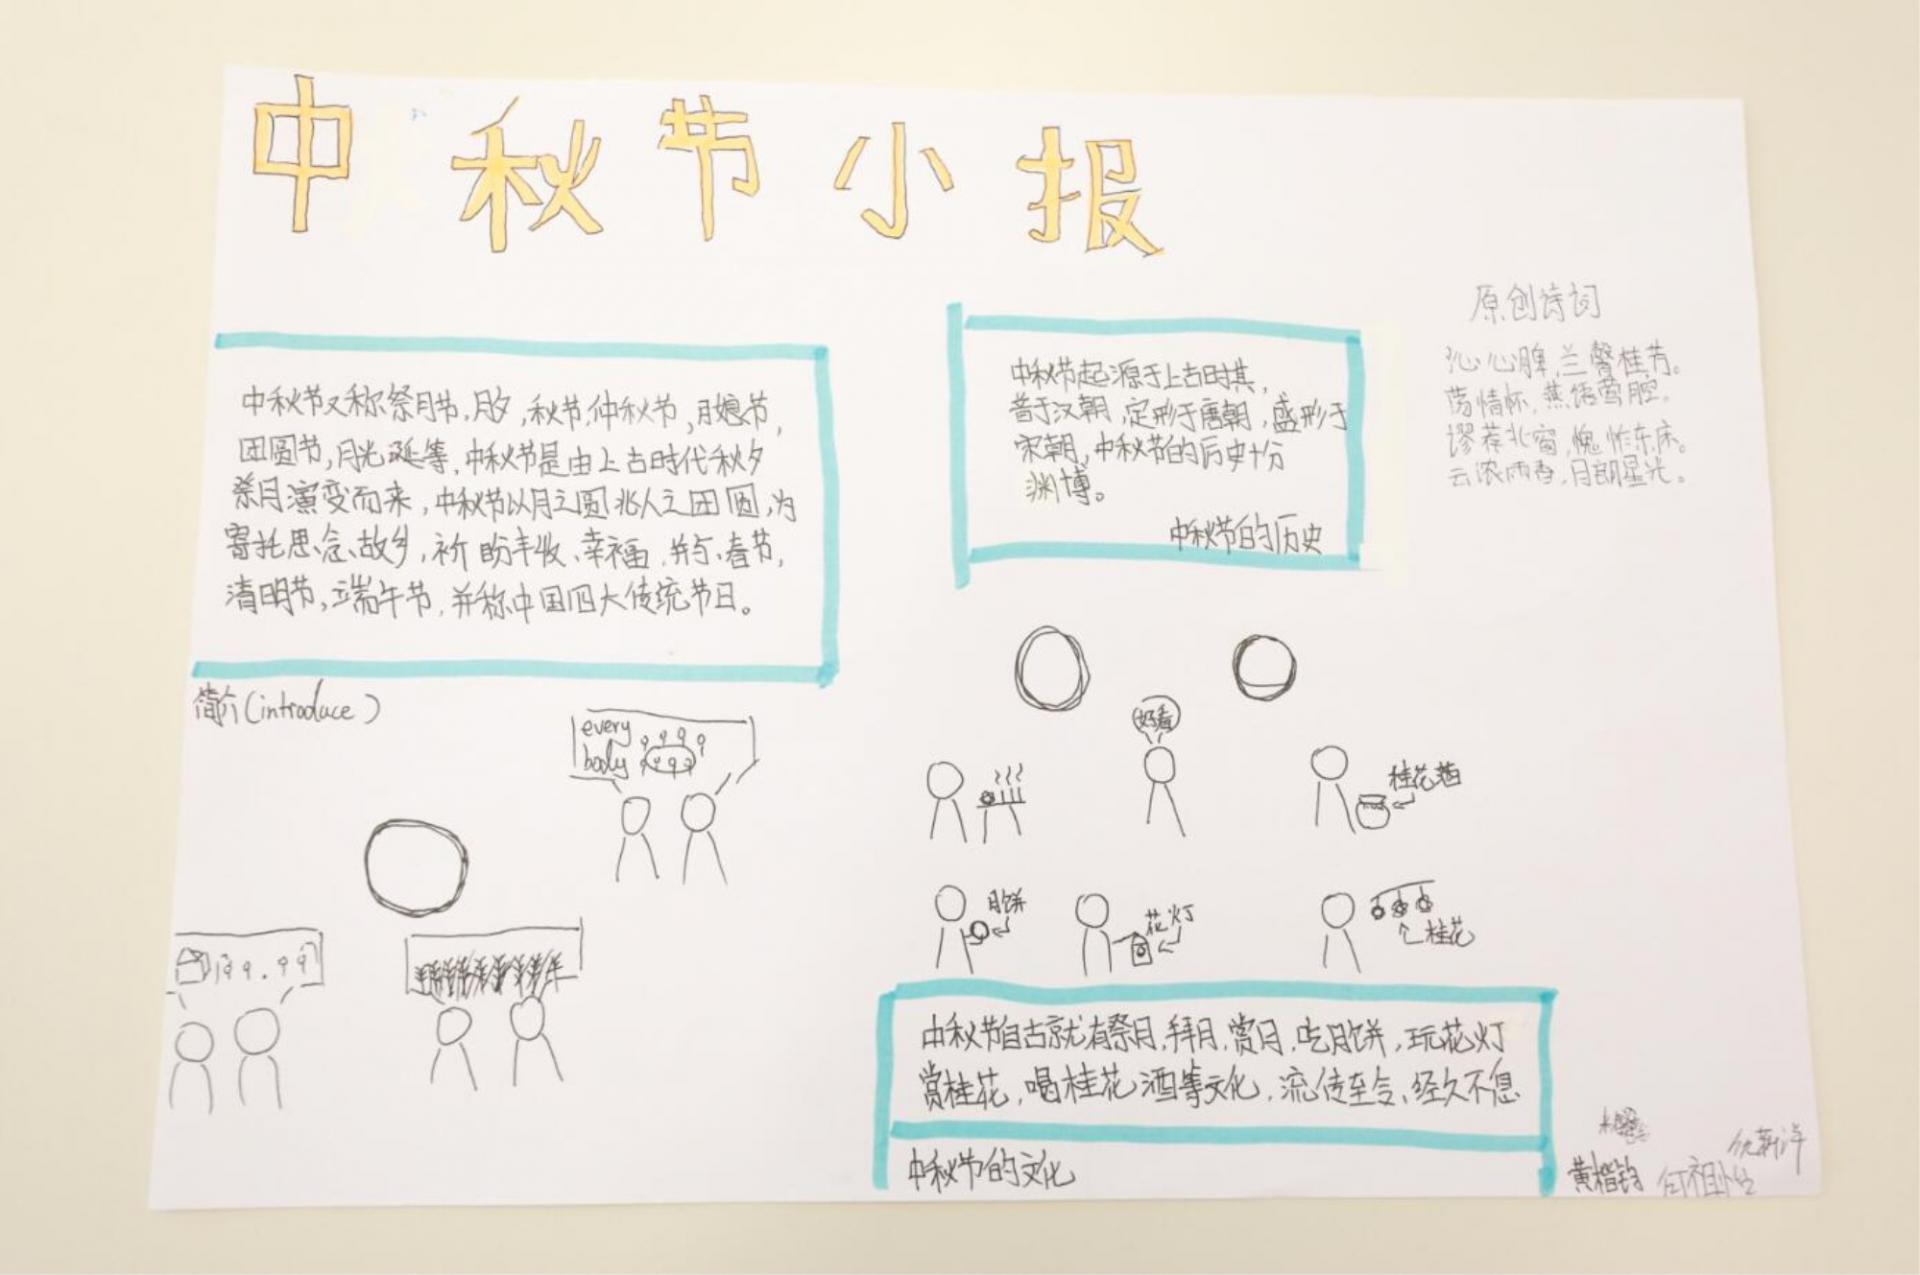 中秋节小报
中秋节又称祭月节,月夕,秋节,仲秋节,月娘节,
团圆节,月光诞等,中秋节是由上古时代秋夕
祭月演变而来,中秋节以月之圆兆人之团圆,为
寄托思念故乡,祈盼丰收、幸福,并与、春节,
清明节,端午节,并称中国四大传统节日。
简介(introduce)
中秋节起源于上古时其,
普于汉朝,定形于唐朝,盛形于
宋朝,中秋节的历史十分
渊博。
中秋节的历史
原创诗词
沁心脾,兰馨桂芳。
荡情怀,燕语莺腔。
谬荐北窗,愧怍东床。
云浓雨香,月朗星光。
every
body
好看
桂花酒
月饼
花灯
桂花
中秋节自古就有祭月,拜月,赏月,吃月饼,玩花灯
赏桂花,喝桂花酒等文化,流传至今、经久不息
中秋节的文化
黄楷钧